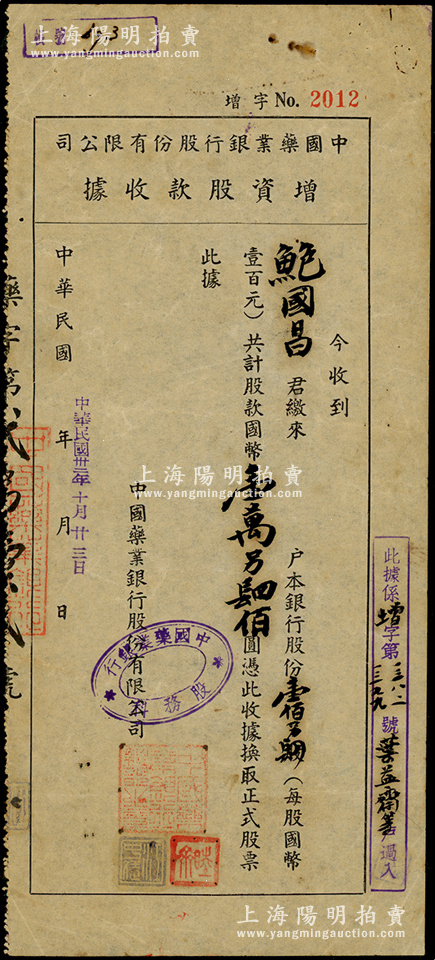 上海陽明拍賣
www.yangmingauction.com
增字 No. 2012
中國藥業銀行股份有限公司
增資股款收據
今收到
鮑國昌 君繳來 户本銀行股份壹佰〇四（每股國幣
壹百元）共計股款國幣壹萬〇肆佰圓憑此收據換取正式股票
此據
中國藥業銀行股份有限公司
中華民國 年 月 日
中華民國卅三年十月廿三日
中國藥業銀行
股務
此據係增字第 號葉益齋等過入
藥字第 號
上海陽明拍賣
www.yangmingauction.com
上海陽明拍賣
www.yangmingauction.com